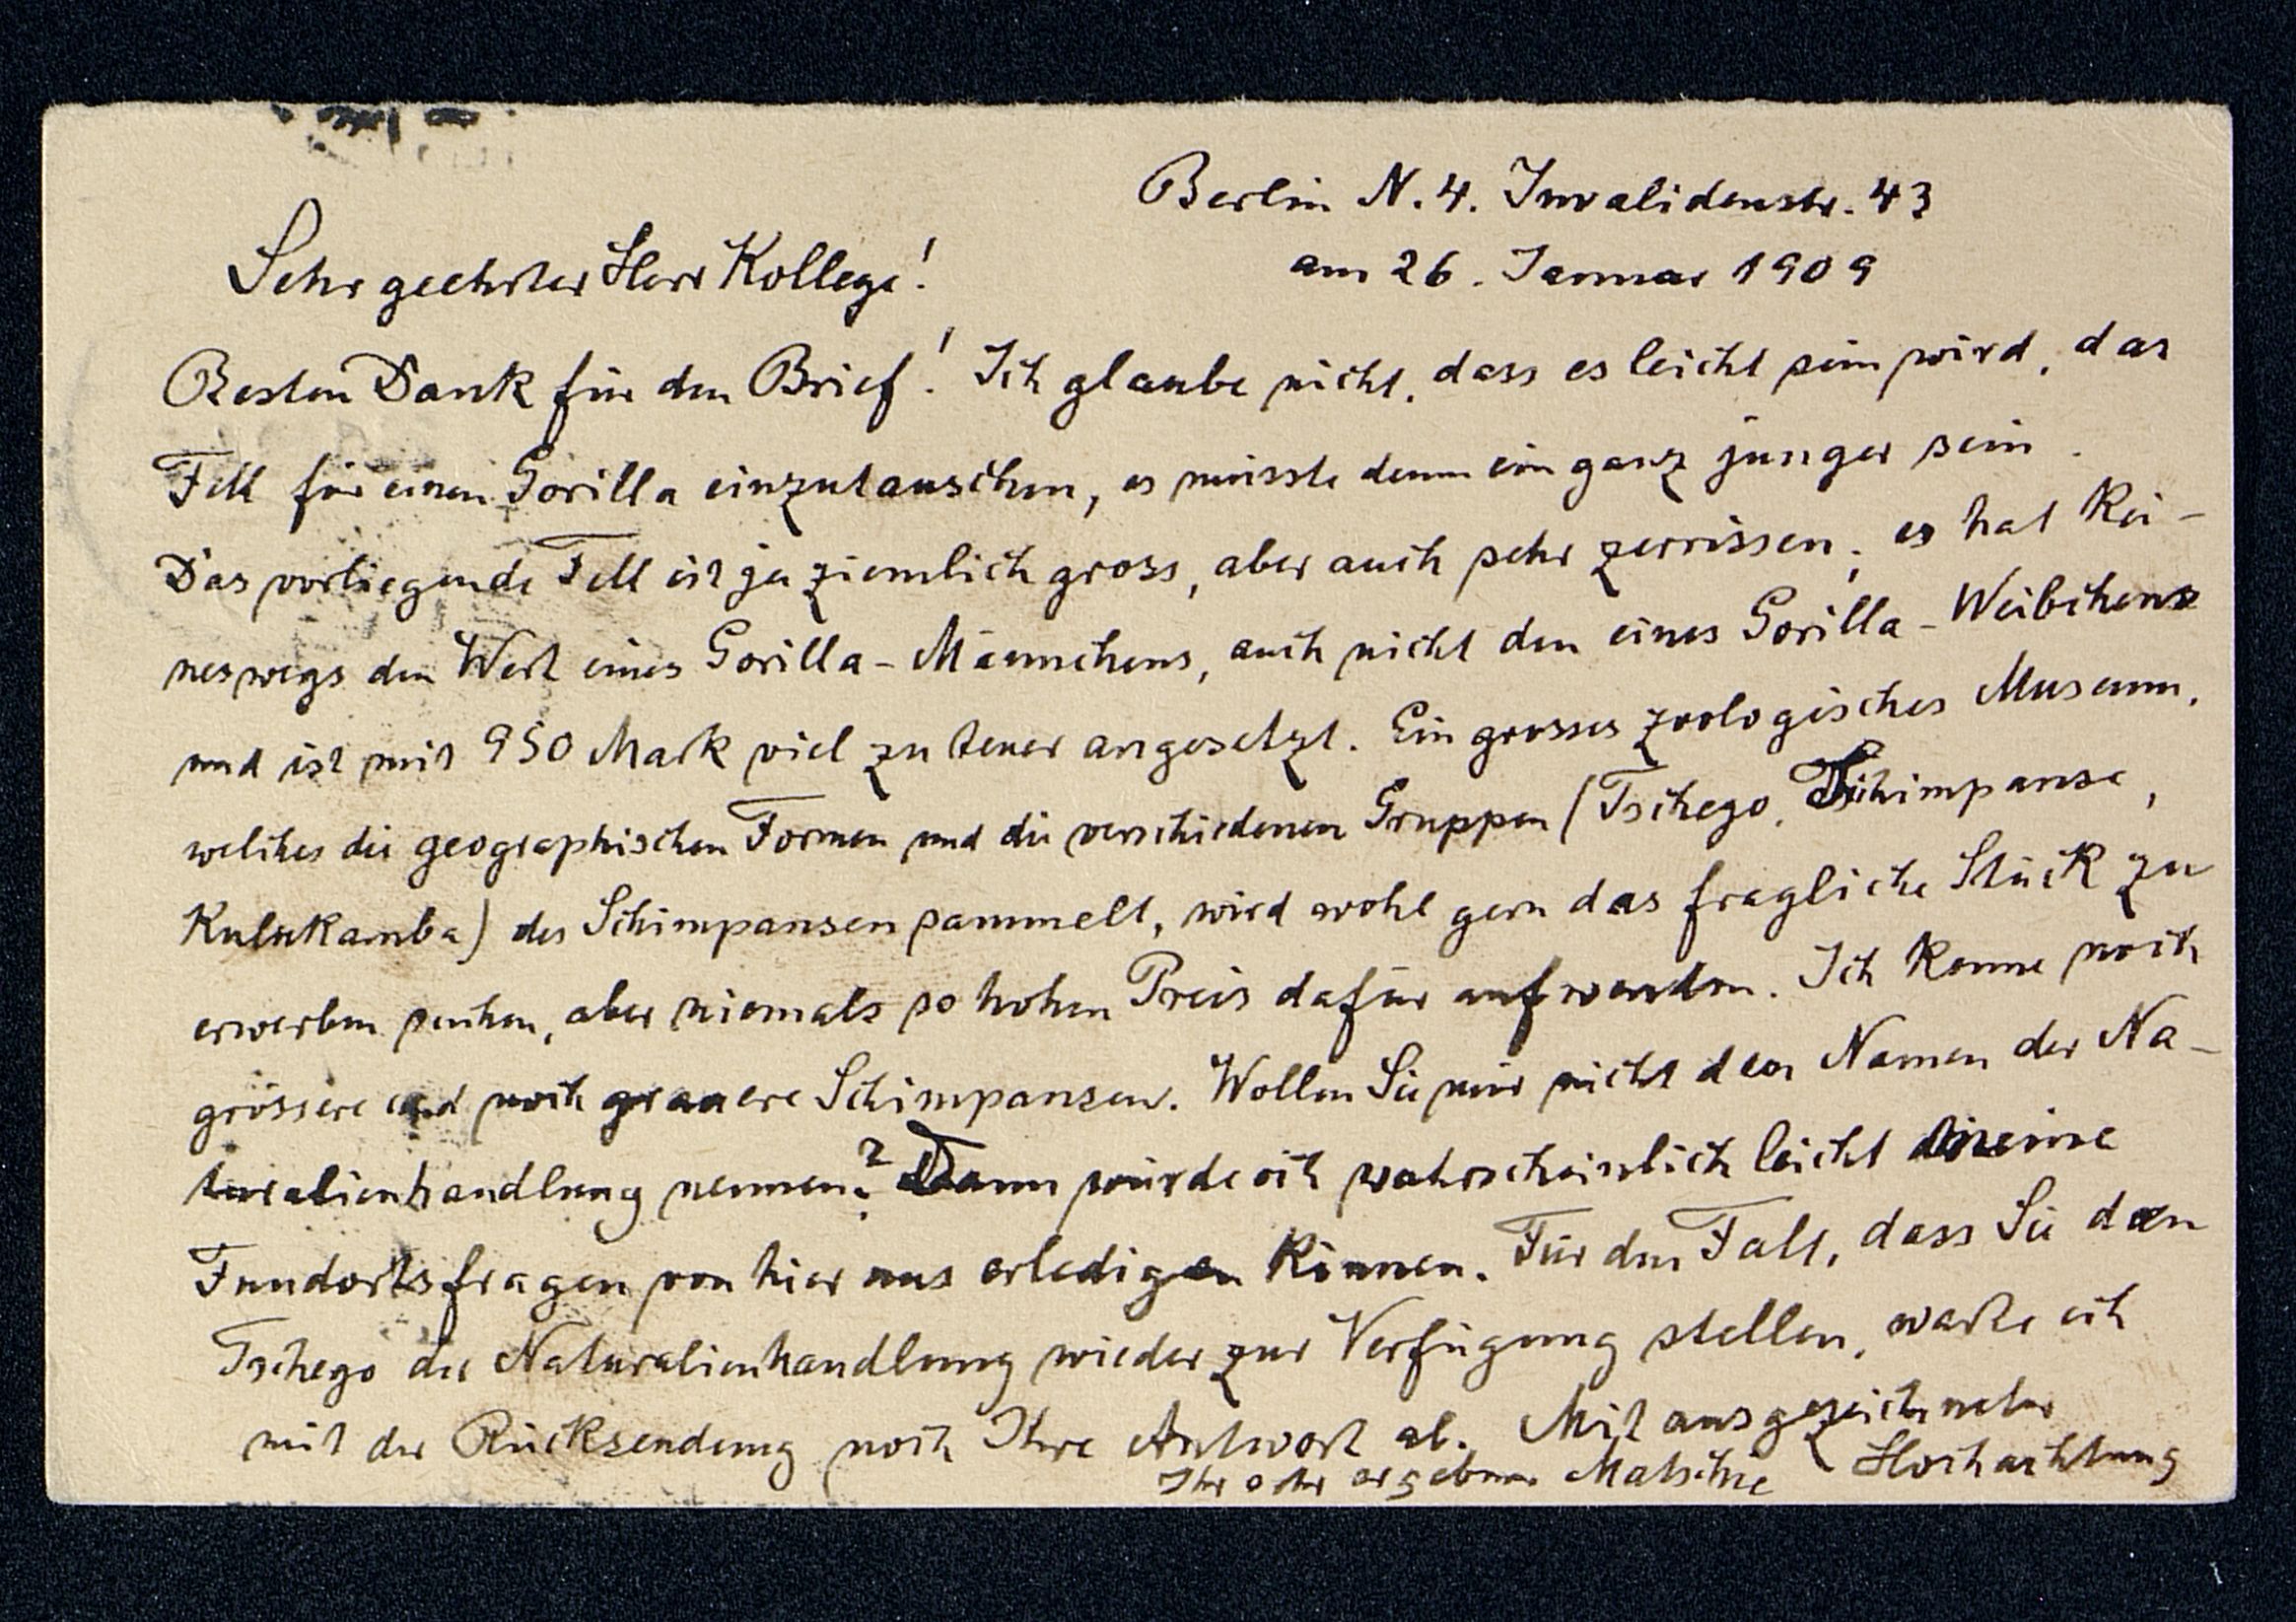 Berlin N. 4. Invalidenstr. 43
am 26. Januar 1909
Sehr geehrter Herr Kollege!
Besten Dank für den Brief! Ich glaube nicht, dass es leicht sein wird, das
Fell für einen Gorilla einzutauschen, es müsste denn ein ganz junger sein.
Das vorliegende Fell ist ja ziemlich gross, aber auch sehr zerrissen; es hat kei-
neswegs den Wert eines Gorilla-Männchens, auch nicht den eines Gorilla-Weibchens
und ist mit 950 Mark viel zu teuer angesetzt. Ein grosses zoologisches Museum,
welches die geographischen Formen und die verschiedenen Gruppen (Tschego, Schimpanse,
Kulukamba) des Schimpansen sammelt, wird wohl gern das fragliche Stück zu
erwerben suchen, aber niemals so hohen Preis dafür aufwenden. Ich kenne noch
grössere und noch grauere Schimpansen. Wollen Sie mir nicht den Namen der Na-
turalienhandlung nennen? Dann würde ich wahrscheinlich leicht meine
Fundortsfragen von hier aus erledigen können. Für den Fall, dass Sie den
Tschego der Naturalienhandlung wieder zur Verfügung stellen, warte ich
mit der Rücksendung noch Ihre Antwort ab. Mit ausgezeichneter
Hochachtung
Ihr sehr ergebener Matschie